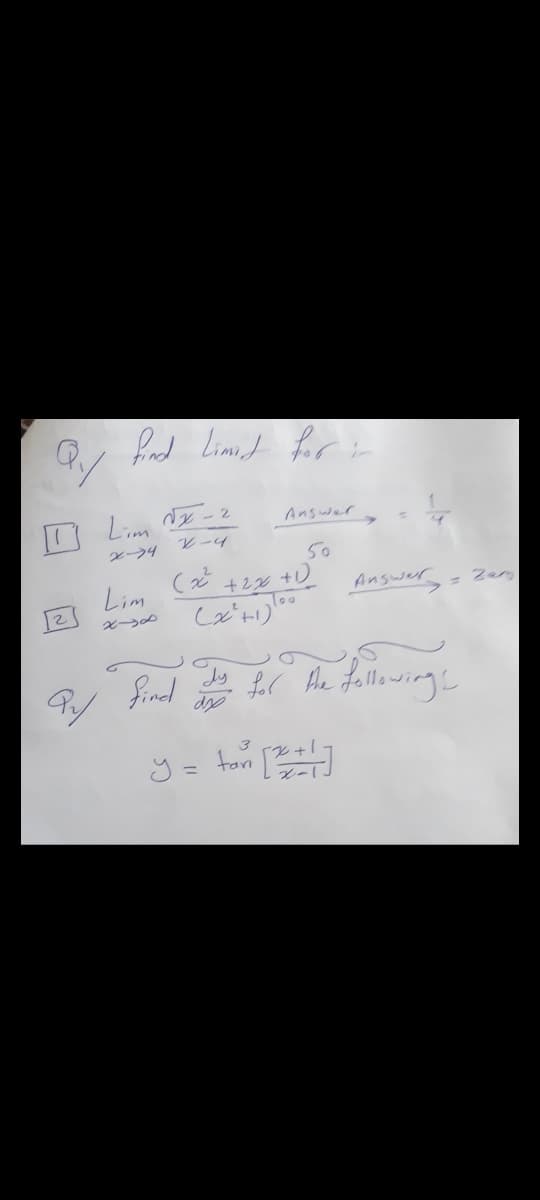 Q1/ find Limit for :-
[1] Lim x→4 (√x - 2)/(x - 4) Answer → = 1/4
[2] Lim x→∞ (x² + 2x + 1)⁵⁰/(x² + 1)¹⁰⁰ Answer → = Zero
Q2/ find dy/dx for the following:
y = tan³ [(x + 1)/(x - 1)]